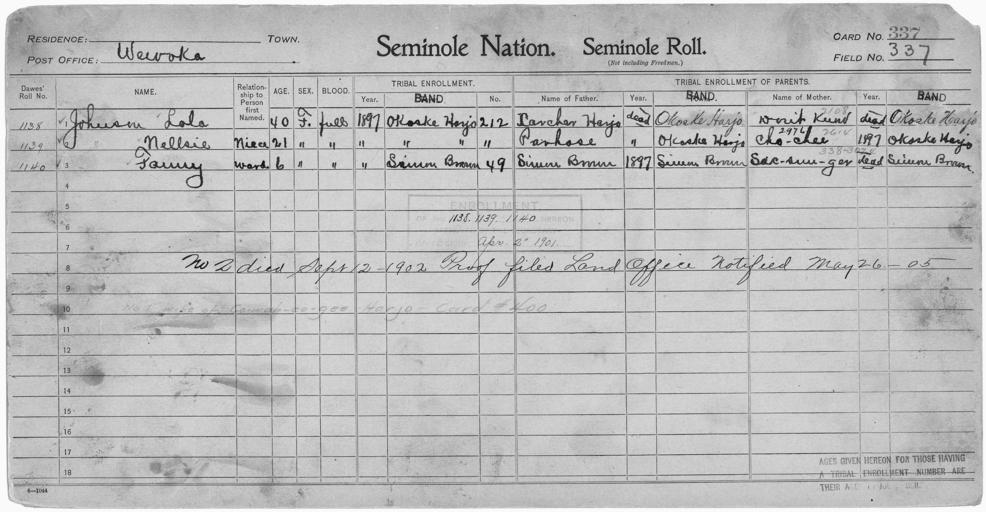 RESIDENCE: TOWN.
POST OFFICE: Wewoka
Seminole Nation. Seminole Roll.
(Not including Freedmen.)
CARD NO. 337
FIELD NO. 337
Dawes' Roll No. NAME. Relationship to Person first Named. AGE. SEX. BLOOD. TRIBAL ENROLLMENT. TRIBAL ENROLLMENT OF PARENTS.
Year. BAND No. Name of Father. Year. BAND. Name of Mother. Year. BAND
1138 1 Johnson Lola 40 F. full 1897 Okoske Harjo 212 Larcher Harjo dead Okoske Harjo dead Okoske Harjo
1139 2 " Nellsie Niece 21 " " " " " " Parhose " Okoske Harjo Cho-chee 1897 Okoske Harjo
1140 3 " Fanny ward 6 " " " Simon Brown 49 Simon Brown 1897 Simon Brown dead Simon Brown
4
5
6 1138. 1139. 1140
ENROLLMENT
HEREON
7 Apr. 2" 1901.
8 No 2 died Sept 12 - 1902 Proof filed Land Office Notified May 26 - 05
9
10 Harjo - Card #400
11
12
13
14
15
16
17
18
AGES GIVEN HEREON FOR THOSE HAVING
A TRIBAL ENROLLMENT NUMBER ARE
THEIR
6-1044